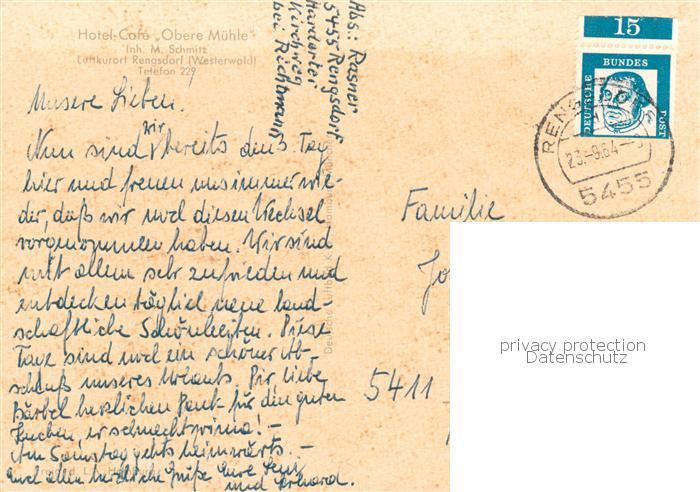 Hotel-Café „Obere Mühle"
Inh. M. Schmitz
Luftkurort Rengsdorf (Westerwald)
Telefon 229
Abs.: Rasner
5455 Rengsdorf
Kirchweg
bei Richtmann
15
DEUTSCHE BUNDES POST
RENGSDORF
23.-8.64
5455
Unsere Lieben!
Nun sind wir bereits den 3. Tag
hier und freuen uns immer wie-
der, daß wir noch diesen Wechsel
vorgenommen haben. Wir sind
mit allem sehr zufrieden und
entdecken täglich neue land-
schaftliche Schönheiten. Diese
Tage sind noch ein schöner Ab-
schluß unseres Urlaubs. Dir, liebe
Bärbel herzlichen Dank für den guten
Kuchen, er schmeckt prima! –
Am Samstag gehts heimwärts. –
Euch allen herzliche Grüße Eure Leni
und Erhard.
Familie
Jo
5411
privacy protection
Datenschutz